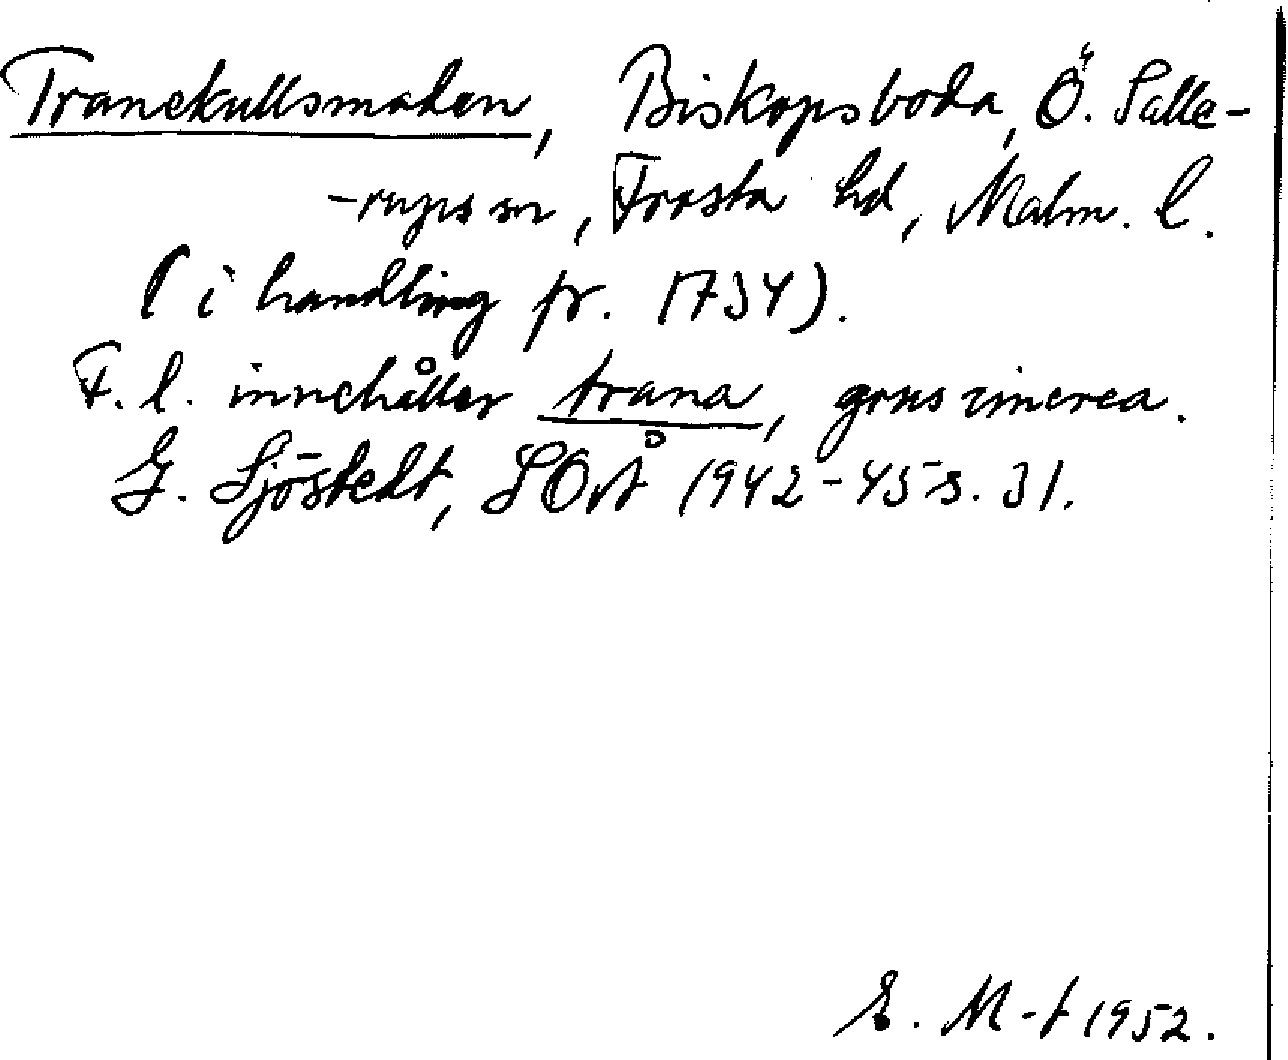 Tranekullsmaden, Biskopsboda, Ö. Salle-
-rups sn, Frosta hd, Malm. l.
(i handling fr. 1734).
F. l. innehåller trana, grus cinerea.
G. Sjöstedt, SOrtÅ 1942-45 s. 31.
E. M-t 1952.